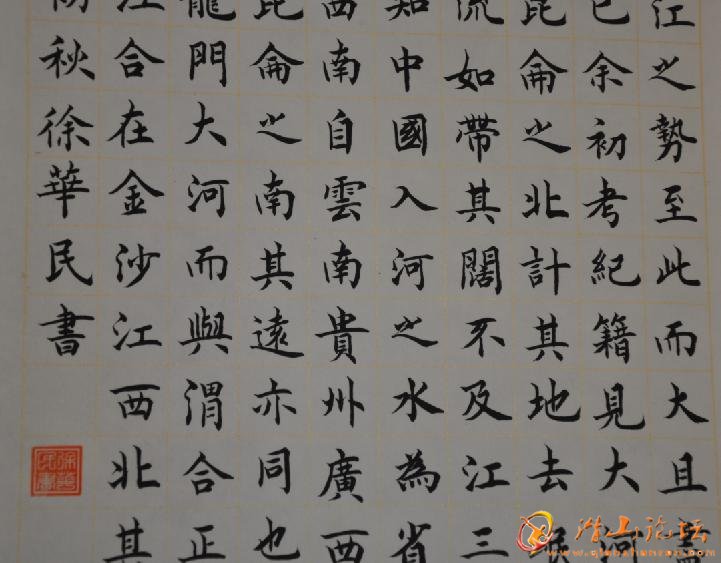 江之勢至此而大且
已余初考紀籍見大河
昆侖之北計其地去
流如帶其闊不及江三
知中國入河之水為省
西南自雲南貴州廣西
昆侖之南其遠亦同也
龍門大河而與渭合正
江合在金沙江西北其
秋徐華民書
潜山论坛